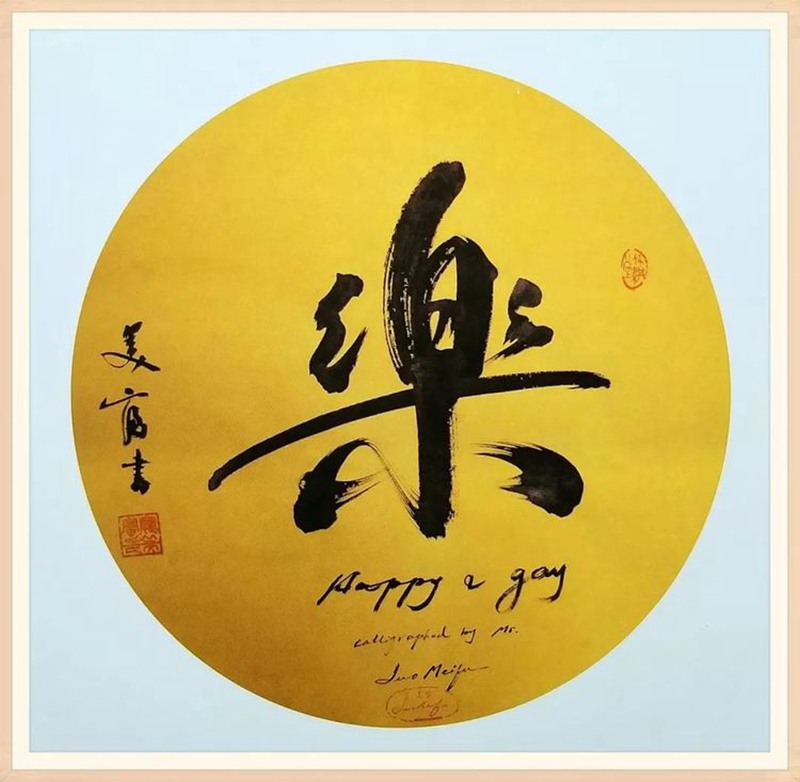 樂
美富書
Happy & gay
calligraphed by Mr.
Luo Meifu